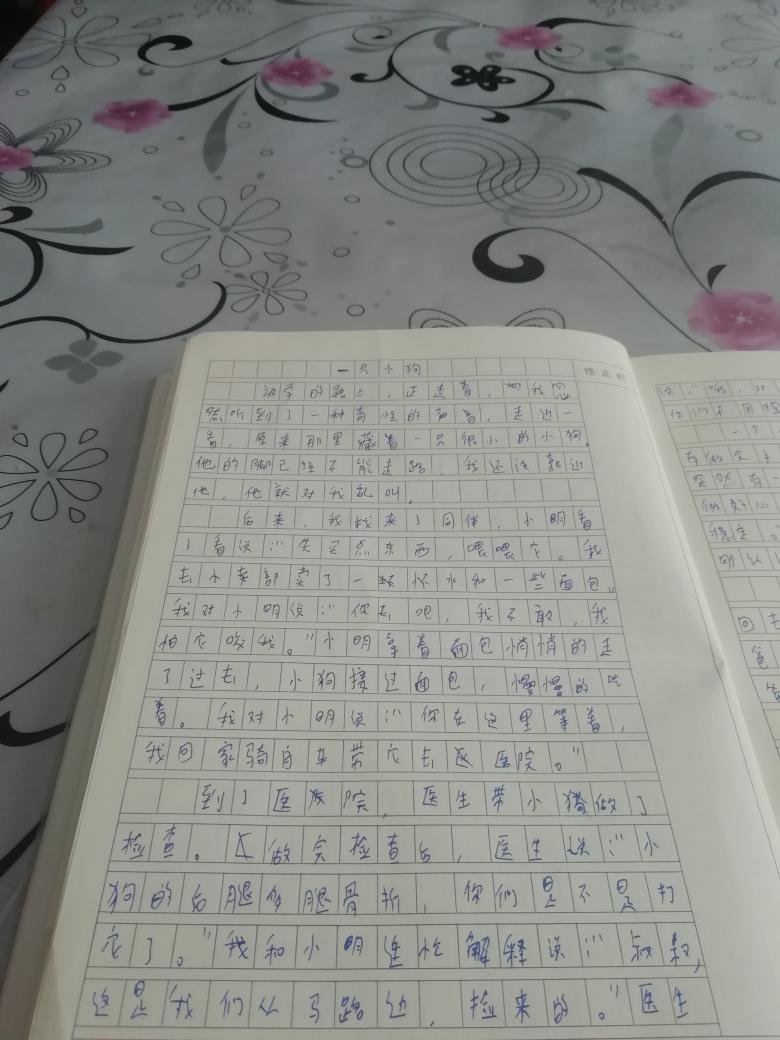 一只小狗
修正栏
放学的路上，正走着，我忽
然听到了一种奇怪的声音，走近一
看，原来那里藏着一只很小的小狗。
他的脚已经不能走路，我还没靠近
他，他就对我乱叫。
后来，我找来了同伴，小明看
了看说：“先买点东西，喂喂它。我
去小卖部卖了一瓶水和一些面包。
我对小明说：“你去吧，我不敢，我
怕它咬我。”小明拿着面包悄悄的走
了过去，小狗接过面包，慢慢的吃
着。我对小明说：“你在这里等着，
我回家骑自车带它去医院。”
到了医院，医生带小猪做了
检查。做完检查后，医生说：“小
狗的后腿多腿骨折，你们是不是打
它了。”我和小明连忙解释说：“叔叔，
这是我们从马路边，捡来的。”医生
有一
突然有一
做好心
稳定。
刚从
回去
爸